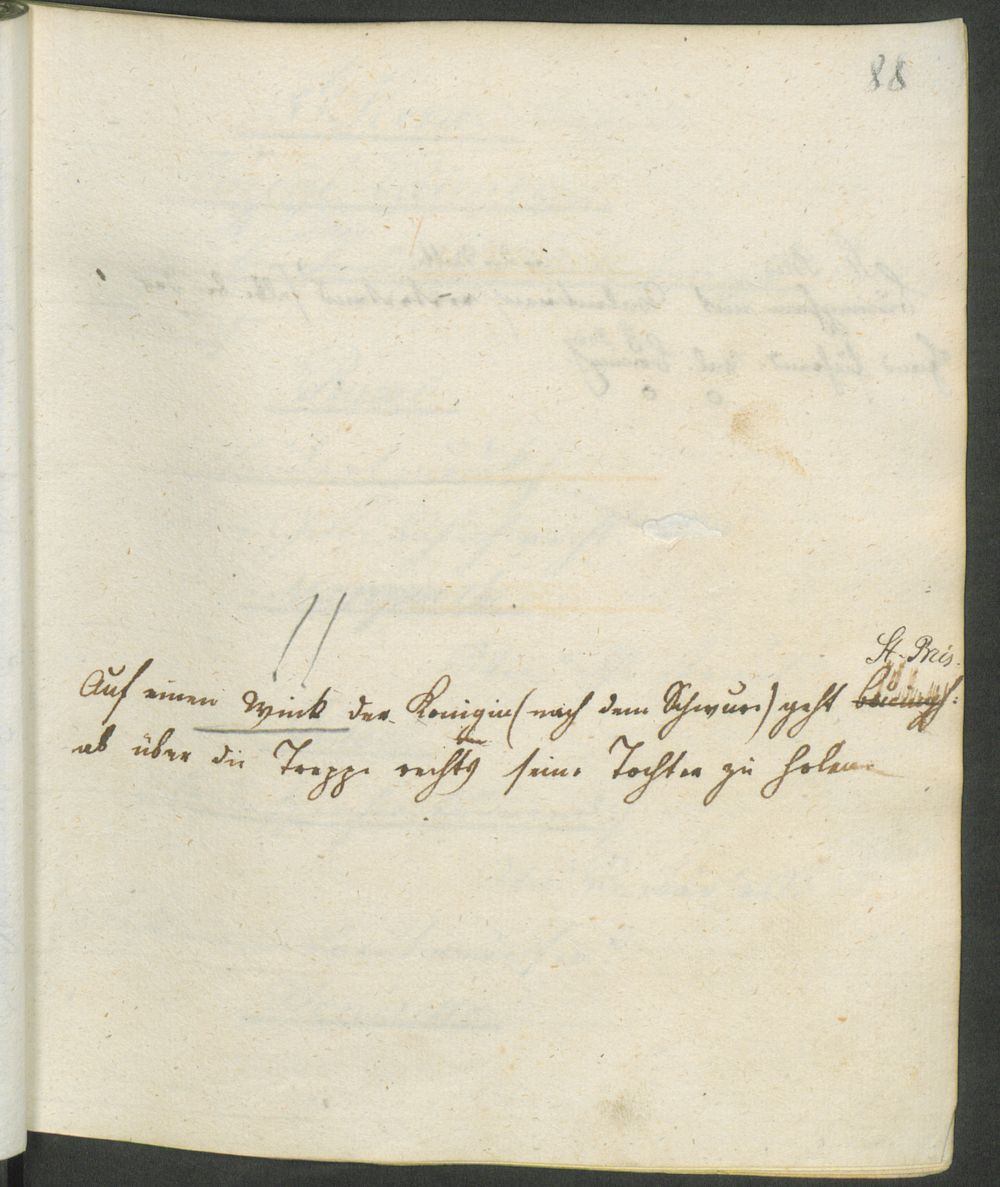 88
St. Bris.
Auf einen Wink der Königin (nach dem Schwur) geht
ab über die Treppe rechts seine Tochter zu holen